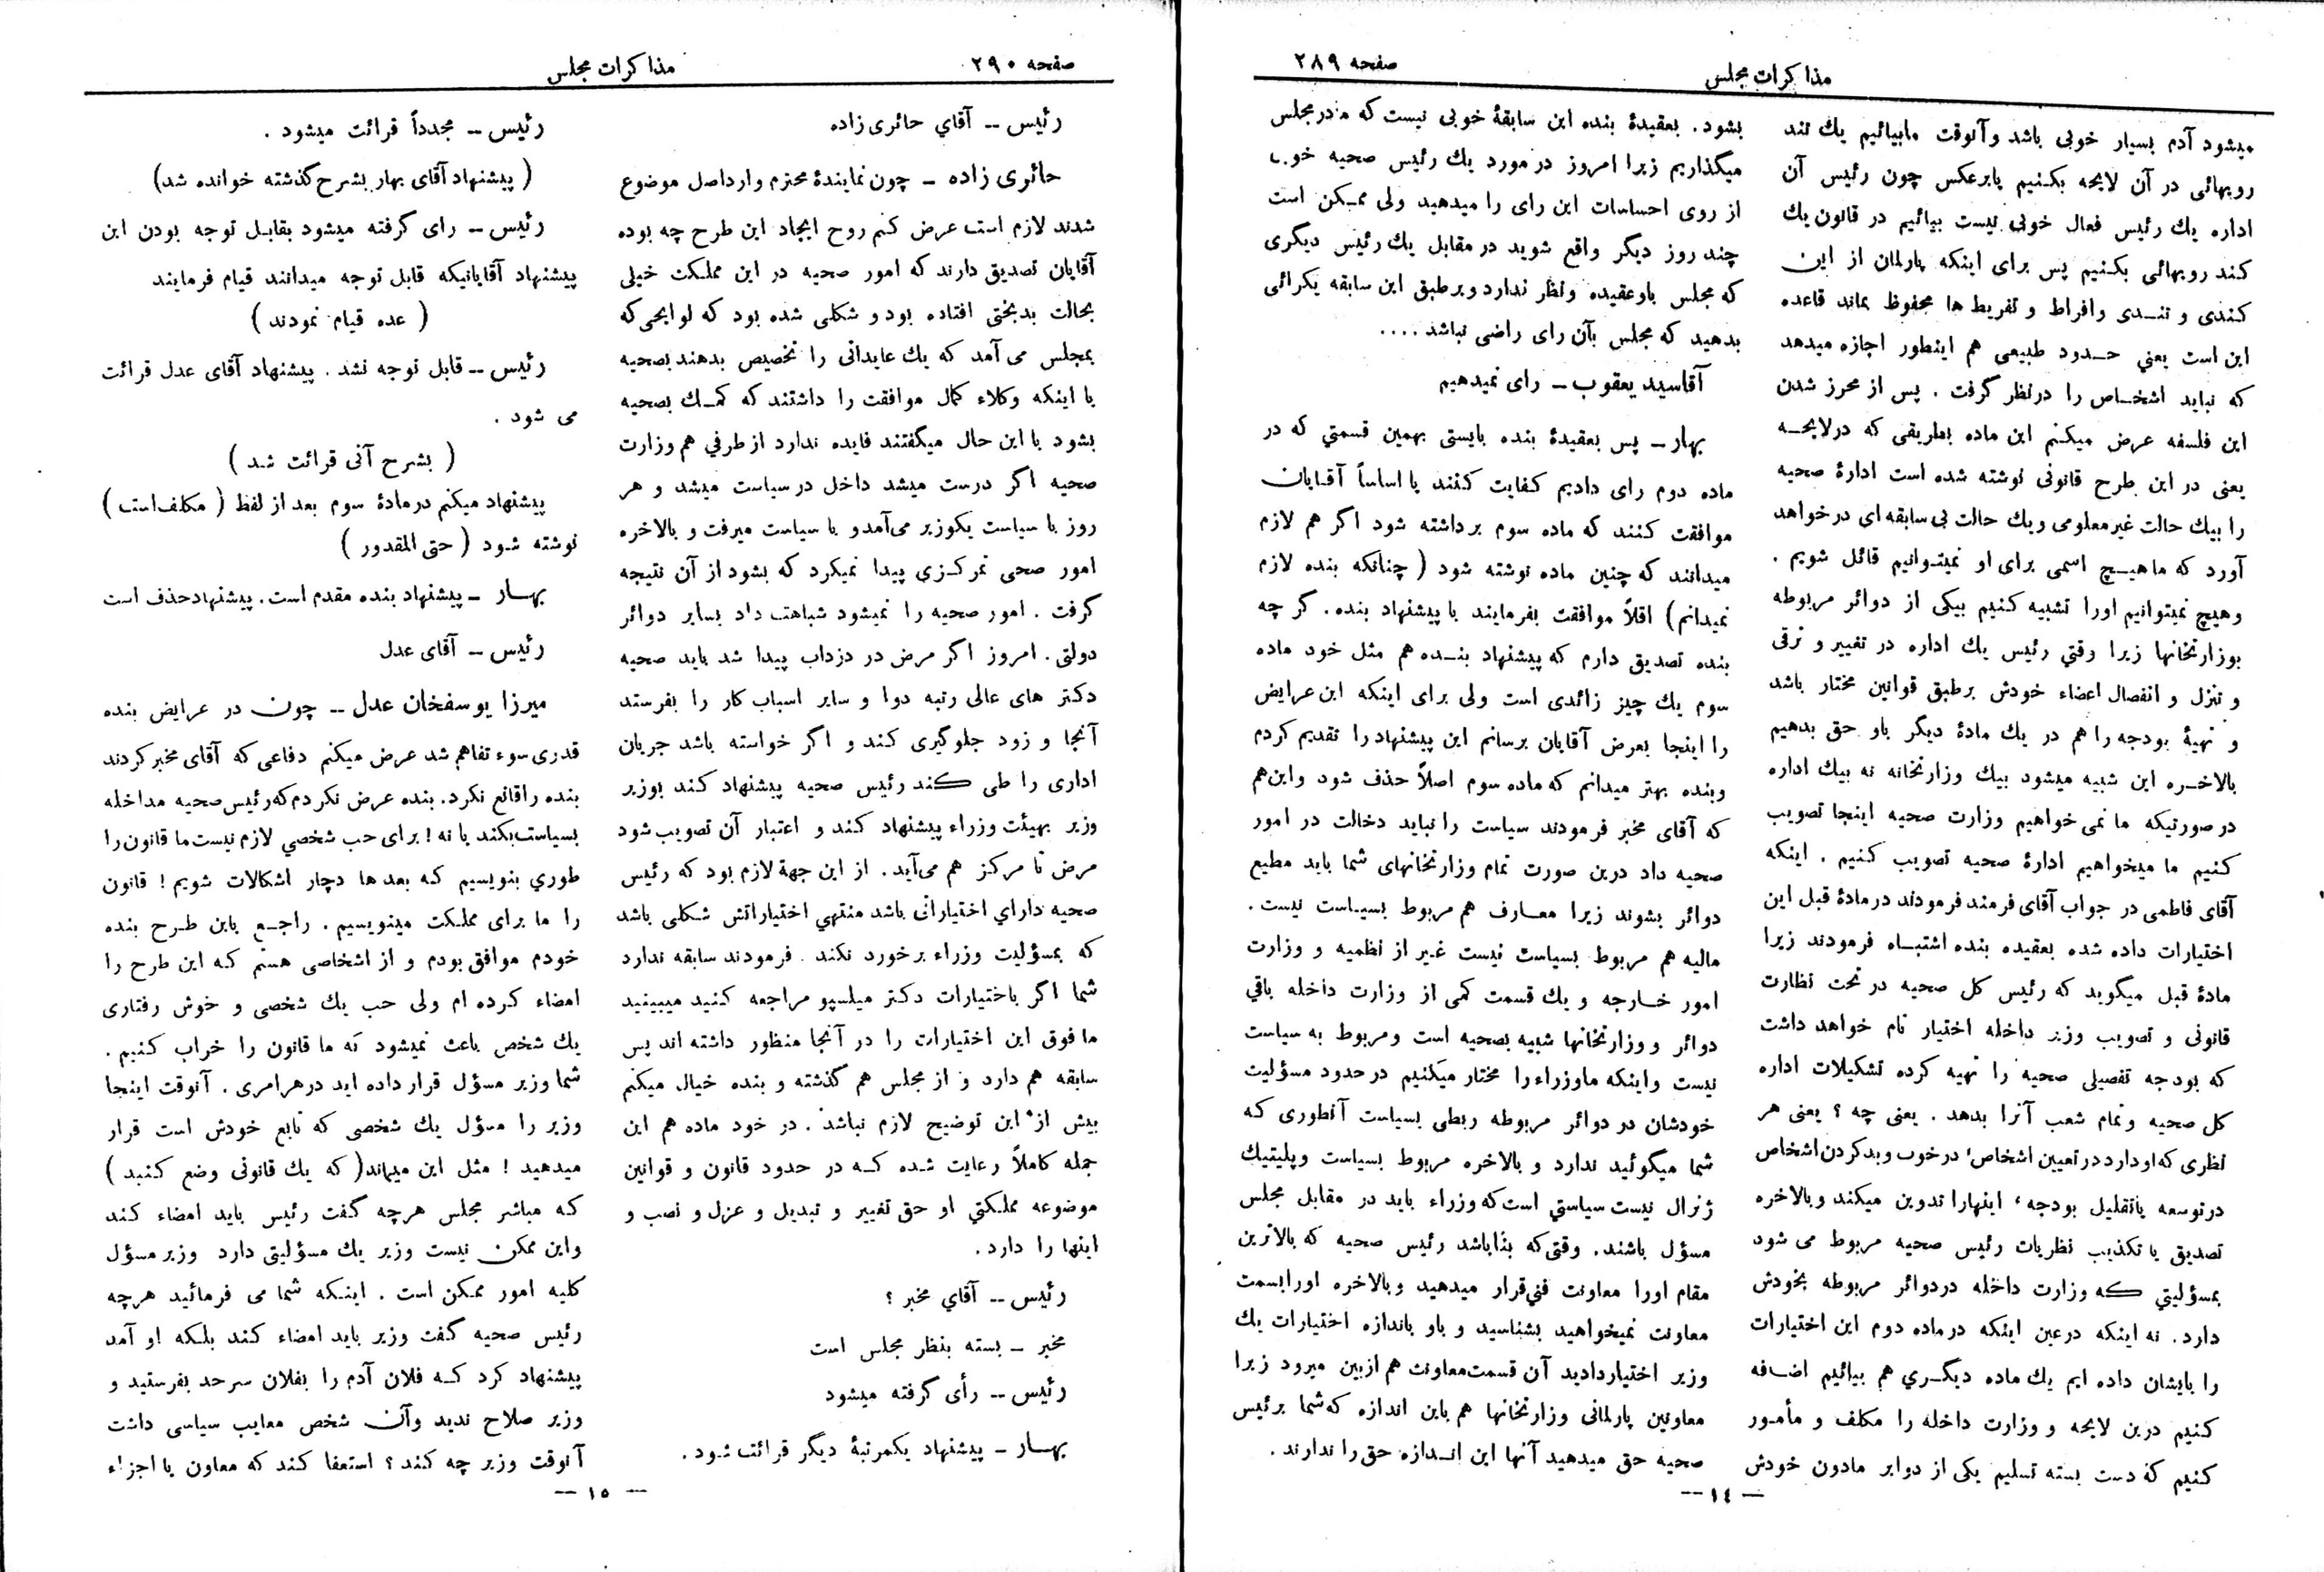 صفحه ۲۸۹
مذاکرات مجلس
میشود آدم بسیار خوبی باشد وآنوقت مابیائیم یك تند
رویهائی در آن لایحه بکنیم یابرعکس چون رئیس آن
اداره یك رئیس فعال خوبی نیست بیائیم در قانون یك
کند رویهائی بکنیم پس برای اینکه پارلمان از این
کندی و تنـدی وافراط و تفریط ها محفوظ بماند قاعده
این است یعنی حـدود طبیعی هم اینطور اجازه میدهد
که نباید اشخـاص را درنظر گرفت . پس از محرز شدن
این فلسفه عرض میکنم این ماده بطریقی که درلایحـه
یعنی در این طرح قانونی نوشته شده است ادارۀ صحیه
را بیك حالت غیرمعلومی ویك حالت بی سابقه ای درخواهد
آورد که ماهیـچ اسمی برای او نمیتـوانیم قائل شویم .
وهیچ نمیتوانیم اورا تشبیه کنیم بیکی از دوائر مربوطه
بوزارتخانها زیرا وقتي رئیس یك اداره در تغییر و ترقی
و تنزل و انفصال اعضاء خودش برطبق قوانین مختار باشد
و تهیۀ بودجه را هم در یك مادۀ دیگر باو حق بدهیم
بالاخـره این شبیه میشود بیك وزارتخانه نه بیك اداره
درصورتیکه ما نمی خواهیم وزارت صحیه اینجا تصویب
کنیم ما میخواهیم ادارۀ صحیه تصویب کنیم . اینکه
آقای فاطمی در جواب آقای فرمند فرمودند درمادۀ قبل این
اختیارات داده شده بعقیده بنده اشتبـاه فرمودند زیرا
مادۀ قبل میگوید که رئیس کل صحیه در تحت نظارت
قانونی و تصویب وزیر داخله اختیار تام خواهد داشت
که بودجه تفصیلی صحیه را تهیه کرده تشکیلات اداره
کل صحیه وتمام شعب آنرا بدهد . یعنی چه ؟ یعنی هر
نظری که او دارد در تعیین اشخاص، درخوب وبدکردن اشخاص
درتوسعه یاتقلیل بودجه، اینهارا تدوین میکند وبالاخره
تصدیق یا تکذیب نظریات رئیس صحیه مربوط می شود
بمسؤلیتي که وزارت داخله دردوائر مربوطه بخودش
دارد . نه اینکه درعین اینکه درماده دوم این اختیارات
را بایشان داده ایم یك ماده دیگـري هم بیائیم اضـافه
کنیم درین لایحه و وزارت داخله را مکلف و مأمـور
کنیم که دست بسته تسلیم یکی از دوایر مادون خودش
بشود . بعقیدۀ بنده این سابقۀ خوبی نیست که مادرمجلس
میگذاریم زیرا امروز درمورد یك رئیس صحیه خوب
از روی احساسات این رای را میدهید ولی ممـکن است
چند روز دیگر واقع شوید درمقابل یك رئیس دیگری
که مجلس باوعقیده ونظر ندارد وبرطبق این سابقه یکرائی
بدهید که مجلس بآن رای راضی نباشد ....
آقاسید یعقوب ـ رای نمیدهیم
بهار ـ پس بعقیدۀ بنده بایستی بهمین قسمتي که در
ماده دوم رای دادیم کفایت کنند یا اساساً آقـایان
موافقت کنند که ماده سوم برداشته شود اگر هم لازم
میدانند که چنین ماده نوشته شود ( چنانکه بنده لازم
نمیدانم ) اقلاً موافقت بفرمایند با پیشنهاد بنده . گرچه
بنده تصدیق دارم که پیشنهاد بنـده هم مثل خود ماده
سوم یك چیز زائدی است ولی برای اینکه این عرایض
را اینجا بعرض آقایان برسانم این پیشنهاد را تقدیم کردم
وبنده بهتر میدانم که ماده سوم اصلاً حذف شود واین هم
که آقای مخبر فرمودند سیاست را نباید دخالت در امور
صحیه داد درین صورت تمام وزارتخانهای شما باید مطیع
دوائر بشوند زیرا معـارف هم مربوط بسیـاست نیست .
مالیه هم مربوط بسیاست نیست غیر از نظمیه و وزارت
امور خـارجه و یك قسمت کمی از وزارت داخله باقي
دوائر و وزارتخانها شبیه بصحیه است ومربوط به سیاست
نیست واینکه ماوزراء را مختار میکنیم درحدود مسؤلیت
خودشان در دوائر مربوطه ربطی بسیاست آنطوری که
شما میگوئید ندارد و بالاخره مربوط بسیاست وپلیتیك
ژنرال نیست سیاستي است که وزراء باید در مقابل مجلس
مسؤل باشند. وقتی که بناباشد رئیس صحیه که بالاترین
مقام اورا معاونت فني قرار میدهید وبالاخره اورابسمت
معاونت نمیخواهید بشناسید و باو باندازه اختیارات یك
وزیر اختیاردادید آن قسمت معاونت هم ازبین میرود زیرا
معاونین پارلمانی وزارتخانها هم باین اندازه که شما برئیس
صحیه حق میدهید آنها این انـدازه حق را ندارند .
— ۱٤ —
صفحه ۲۹۰
مذاکرات مجلس
رئیس ـــ آقاي حائری زاده
حائری زاده ـ چون نمایندۀ محترم وارداصل موضوع
شدند لازم است عرض کنم روح ایجاد این طرح چه بوده
آقایان تصدیق دارند که امور صحیه در این مملکت خیلی
بحالت بدبختی افتاده بود و شکلی شده بود که لوایحی که
بمجلس می آمد که یك عایداتی را تخصیص بدهند بصحیه
با اینکه وکلاء کمال موافقت را داشتند که کمـك بصحیه
بشود با این حال میگفتند فایده ندارد از طرفي هم وزارت
صحیه اگر درست میشد داخل درسیاست میشد و هر
روز با سیاست یکوزیر می آمد و با سیاست میرفت و بالاخره
امور صحی تمرکـزي پیدا نمیکرد که بشود از آن نتیجه
گرفت . امور صحیه را نمیشود شباهت داد بسایر دوائر
دولتي . امروز اگر مرض در دزداب پیدا شد باید صحیه
دکتر های عالی رتبه دوا و سایر اسباب کار را بفرستد
آنجا و زود جلوگیری کند و اگر خواسته باشد جریان
اداری را طی کند رئیس صحیه پیشنهاد کند بوزیر
وزیر بهیئت وزراء پیشنهاد کند و اعتبار آن تصویب شود
مرض تا مرکز هم می آید . از این جهة لازم بود که رئیس
صحیه داراي اختیاراتی باشد منتهي اختیاراتش شکلی باشد
که بمسؤلیت وزراء برخورد نکند . فرمودند سابقه ندارد
شما اگر باختیارات دکتر میلسپو مراجعه کنید میبینید
ما فوق این اختیارات را در آنجا منظور داشته اند پس
سابقه هم دارد و از مجلس هم گذشته و بنده خیال میکنم
بیش از این توضیح لازم نباشد . در خود ماده هم این
جمله کاملاً رعایت شده کـه در حدود قانون و قوانین
موضوعه مملکتي او حق تغییر و تبدیل و عزل و نصب و
اینها را دارد .
رئیس ـــ آقاي مخبر ؟
مخبر ـ بسته بنظر مجلس است
رئیس ـــ رأی گرفته میشود
بهـار ـ پیشنهاد یکمرتبۀ دیگر قرائت شود .
رئیس ـــ مجدداً قرائت میشود .
( پیشنهاد آقای بهار بشرح گذشته خوانده شد)
رئیس ـــ رای گرفته میشود بقابل توجه بودن این
پیشنهاد آقایانیکه قابل توجه میدانند قیام فرمایند
( عده قیام نمودند )
رئیس ـــ قابل توجه نشد . پیشنهاد آقای عدل قرائت
می شود .
( بشرح آتی قرائت شد )
پیشنهاد میکنم درمادۀ سوم بعد از لفظ ( مکلف است )
نوشته شود ( حتی المقدور )
بهـار ـ پیشنهاد بنده مقدم است . پیشنهاد حذف است
رئیس ـــ آقای عدل
میرزا یوسفخان عدل ـــ چون در عرایض بنده
قدری سوء تفاهم شد عرض میکنم دفاعی که آقای مخبر کردند
بنده را قانع نکرد. بنده عرض نکردم که رئیس صحیه مداخله
بسیاست بکند یا نه ! برای حب شخصي لازم نیست ما قانون را
طوري بنویسیم که بعد ها دچار اشکالات شویم ! قانون
را ما برای مملکت مینویسیم . راجـع باین طـرح بنده
خودم موافق بودم و از اشخاصی هستم که این طرح را
امضاء کرده ام ولی حب یك شخصی و خوش رفتاری
یك شخص باعث نمیشود که ما قانون را خراب کنیم .
شما وزیر مسؤل قرار داده اید درهرامری . آنوقت اینجا
وزیر را مسؤل یك شخصی که تابع خودش است قرار
میدهید ! مثل این میماند( که یك قانونی وضع کنید )
کـه مباشر مجلس هرچه گفت رئیس باید امضاء کند
واین ممکن نیست وزیر یك مسؤلیتی دارد وزیر مسؤل
کلیه امور ممکن است . اینـکه شما می فرمائید هرچه
رئیس صحیه گفت وزیر باید امضاء کند بلـکه او آمد
پیشنهاد کرد کـه فلان آدم را بفلان سرحد بفرستید و
وزیر صلاح ندید وآن شخص معایب سیاسی داشت
آنوقت وزیر چه کند ؟ استعفا کند که معاون یا اجزاء
— ۱٥ —